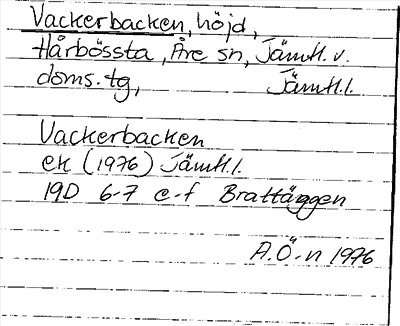 Vackerbacken, höjd,
Hårbössta, Åre sn, Jämtl. v.
doms. tg, Jämtl. l.
Vackerbacken
ek (1976) Jämtl. l.
19D 6-7 e-f Brattäggen
A.Ö-n 1976